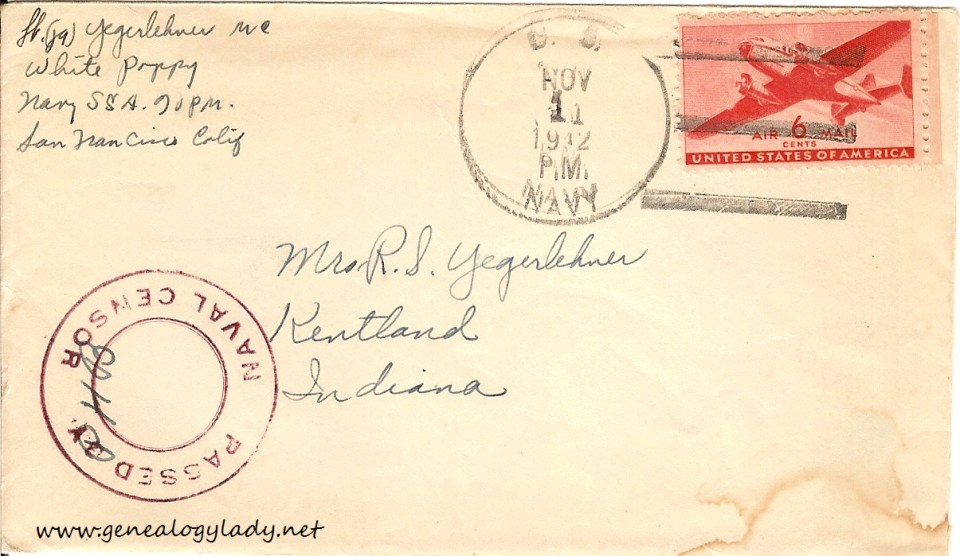 Lt. (jg) Yegerlehner MC
White Poppy
Navy SSA. 70 P.M.
San Francisco Calif
U. S.
NOV
11
1942
P.M.
NAVY
AIR 6 MAIL
CENTS
UNITED STATES OF AMERICA
Mrs R. S. Yegerlehner
Kentland
Indiana
PASSED BY
NAVAL CENSOR
www.genealogylady.net